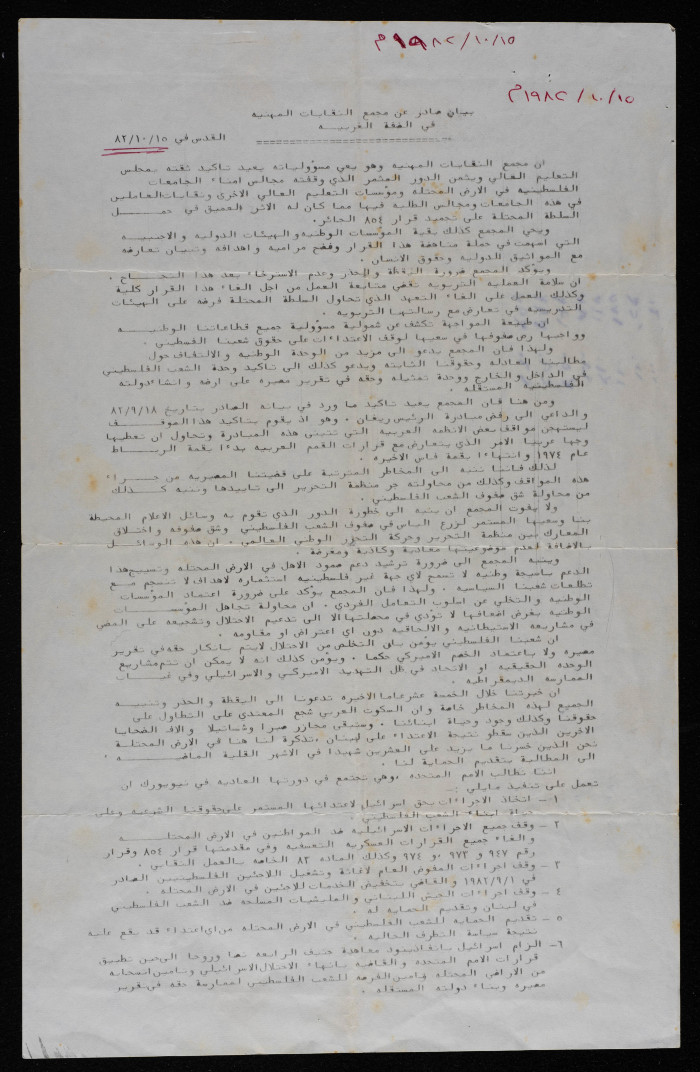 ١٥/١٠/١٩٨٢م
١٥/١٠/١٩٨٢م
بيان صادر عن مجمع النقابات المهنيه
في الضفة الغربيــه
القدس في ٨٢/١٠/١٥
ان مجمع النقابات المهنيه وهو يعي مسؤولياته يعيد تاكيد ثقته بمجلس
التعليم العالي ويثمن الدور المثمر الذي وقفته مجالس امناء الجامعات
الفلسطينيه في الارض المحتله ومؤسسات التعليم العالي الاخرى ونقابات العاملين
في هذه الجامعات ومجالس الطلبه فيها مما كان له الاثر العميق في حمــل
السلطة المحتلة على تجميد قرار ٨٥٤ الجائر.
ويحي المجمع كذلك بقية المؤسسات الوطنيه والهيئات الدوليه والاجنبيــه
التي اسهمت في حملة مناهضة هذا القرار وفضح مراميه واهدافه وتبيان تعارضه
مع المواثيق الدوليه وحقوق الانسان .
ويؤكد المجمع ضرورة اليقظة والحذر وعدم الاسترخاء بعد هذا النجــاح .
ان سلامة العمليه التربويه تقضي متابعة العمل من اجل الغاء هذا القرار كلية
وكذلك العمل على الغاء التعهد الذي تحاول السلطة المحتلة فرضه على الهيئات
التدريسيه في تعارض مع رسالتها التربويه .
ان طبيعة المواجهة تكشف عن شمولية مسؤولية جميع قطاعاتنا الوطنيــه
وواجبها رص صفوفها في سعيها لوقف الاعتداءات على حقوق شعبنا الفلسطيني .
ولهذا فان المجمع يدعو الى مزيد من الوحدة الوطنيه والالتفاف حول
مطالبنا العادله وحقوقنا الثابته ويدعو كذلك الى تاكيد وحدة الشعب الفلسطيني
في الداخل والخارج ووحدة تمثيله وحقه في تقرير مصيره على ارضه وانشاء دولته
الفلسطينيه المستقله .
ومن هنا فان المجمع يعيد تاكيد ما ورد في بيانه الصادر بتاريخ ٨٢/٩/١٨
والداعي الى رفض مبادرة الرئيس ريغان . وهو اذ يقوم بتاكيد هذا الموقــف
ليستهجن مواقف بعض الانظمه العربيه التي تتبنى هذه المبادرة وتحاول ان تعطيها
وجها عربيا الامر الذي يتعارض مع قرارات القمم العربيه بدءا بقمة الربــاط
عام ١٩٧٤ وانتهاءا بقمة فاس الاخيره .
لذلك فاننا ننبه الى المخاطر المترتبة على قضيتنا المصيريه من جــراء
هذه المواقف وكذلك من محاولته جر منظمة التحرير الى تاييدها وننبه كــذلك
من محاولة شق صفوف الشعب الفلسطيني .
ولا يفوت المجمع ان ينبه الى خطورة الدور الذي تقوم به وسائل الاعلام المحيطة
بنا وسعيها المستمر لزرع الياس في صفوف الشعب الفلسطيني وشق صفوفه واختلاق
المعارك بين منظمة التحرير وحركة التحرر الوطني العالمي . ان هذه الوسائــل
بالاضافة لعدم موضوعيتها معادية وكاذبة ومغرضة .
وينبه المجمع الى ضرورة ترشيد دعم صمود الاهل في الارض المحتله وتسييج هذا
الدعم بسياسة وطنيه لا تسمح لاي جهة غير فلسطينيه استثماره لاهداف لا تنسجم مــع
تطلعات شعبنا السياسيه . ولهذا فان المجمع يؤكد على ضرورة اعتماد المؤسسات
الوطنيه والتخلي عن اسلوب التعامل الفردي . ان محاولة تجاهل المؤسســـات
الوطنيه بغرض اضعافها لا تؤدي في محصلتها الا الى تدعيم الاحتلال وتشجيعه على المضي
في مشاريعه الاستيطانيه والالحاقيه دون اي اعتراض او مقاومه .
ان شعبنا الفلسطيني يؤمن بان التخلص من الاحتلال لايتم بانكار حقه في تقرير
مصيره ولا باعتماد الخصم الاميركي حكما . ويؤمن كذلك انه لا يمكن ان تتم مشاريع
الوحده الحقيقيه او الاتحاد في ظل التهديد الاميركي والاسرائيلي وفي غيــاب
الممارسه الديمقراطيه .
ان خبرتنا خلال الخمسة عشر عاما الاخيره تدعونا الى اليقظة والحذر وتنبيــه
الجميع لهذه المخاطر خاصة وان السكوت العربي شجع المعتدي على التطاول على
حقوقنا وكذلك وجود وحياة ابنائنا . وستبقى مجازر صبرا وشاتيلا والاف الضحايا
الاخرين الذين سقطو نتيجة الاعتداء على لبنان ،تذكرة لنا هنا في الارض المحتلة
نحن الذين خسرنا ما يزيد على العشرين شهيدا في الاشهر القليلة الماضيــه .
الى المطالبة بتقديم الحماية لنا .
اننا نطالب الامم المتحده ،وهي تجتمع في دورتها العاديه في نيويورك ان
تعمل على تنفيذ مايلي :-
١ - اتخاذ الاجراءات بحق اسرائيل لاعتدائها المستمر على حقوقنا الشرعيه وعلى
حياة ابناء الشعب الفلسطيني .
٢ - وقف جميع الاجراءات الاسرائيليه ضد المواطنين في الارض المحتلــه
والغاء جميع القرارات العسكريه التعسفيه وفي مقدمتها قرار ٨٥٤ وقرار
رقم ٩٤٧ و ٩٧٣ ،و ٩٧٤ وكذلك الماده ٨٣ الخاصه بالعمل النقابي .
٣ - وقف اجراءات المفوض العام لاغاثة وتشغيل اللاجئين الفلسطينيين الصادر
في ١٩٨٢/٩/١ والقاضي بتخفيض الخدمات للاجئين في الارض المحتله .
٤ - وقف اجراءات الجيش اللبناني والمليشيات المسلحه ضد الشعب الفلسطيني
في لبنان وتقديم الحمايه له .
٥ - تقديم الحمايه للشعب الفلسطيني في الارض المحتله من اي اعتداء قد يقع عليه
نتيجة سياسة التطرف الحاليه .
٦ - الزام اسرائيل بانفاذ بنود معاهدة جنيف الرابعه نصا وروحا الى حين تطبيق
قرارات الامم المتحده والقاضيه بانهاء الاحتلال الاسرائيلي وتامين انسحابه
من الاراضي المحتله وتامين الفرصه للشعب الفلسطيني لممارسة حقه في تقرير
مصيره وبناء دولته المستقله .